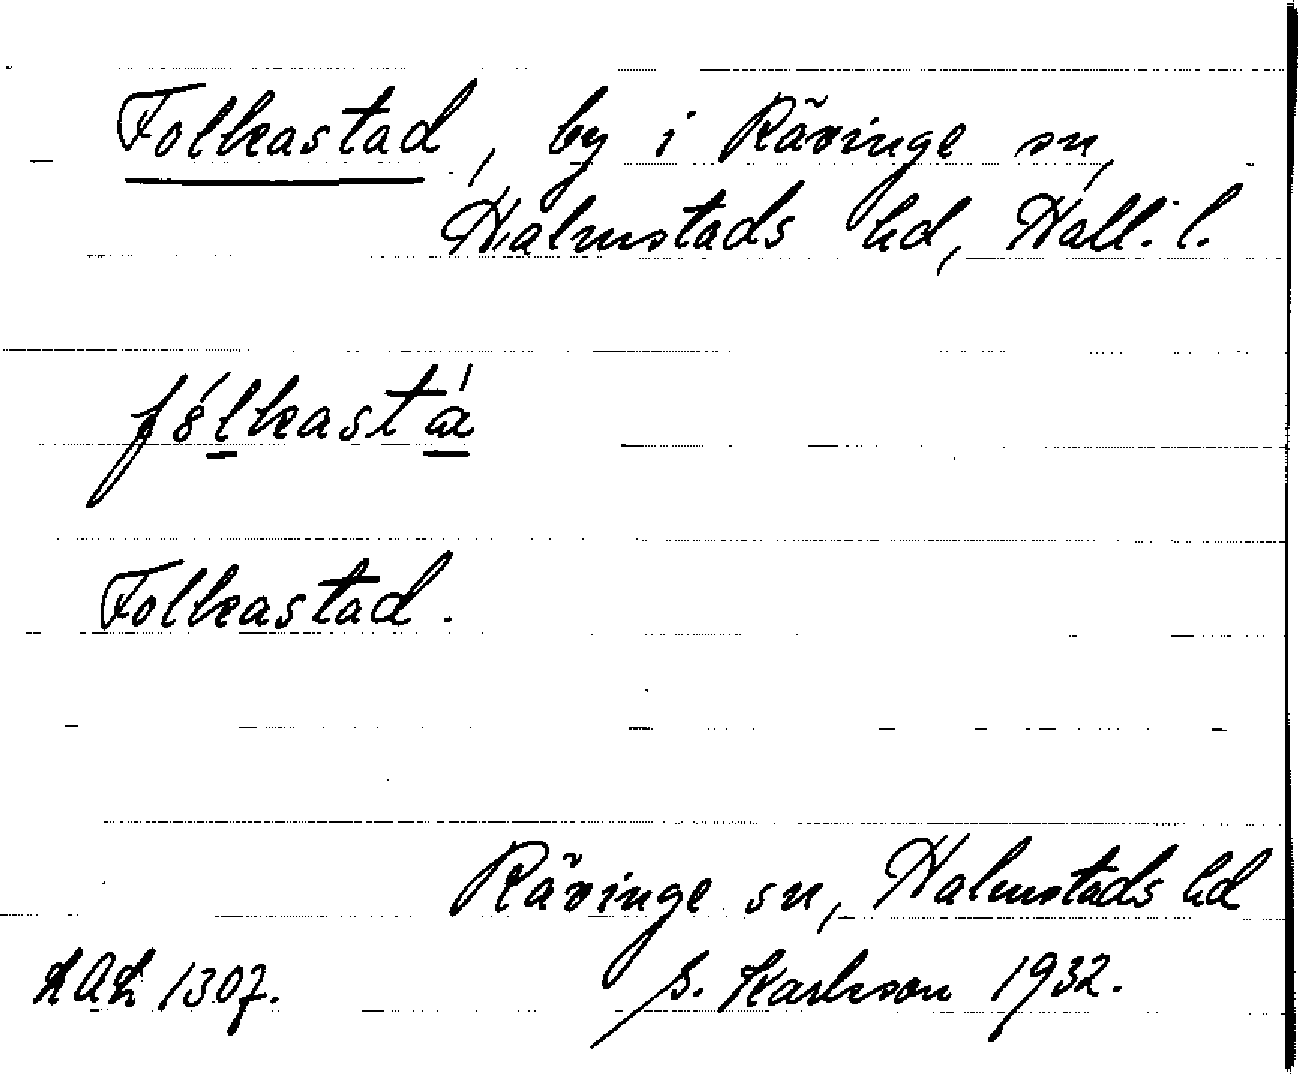 Folkastad, by i Rävinge sn,
Halmstads hd, Hall. l.
fólkastá
Folkastad.
Rävinge sn, Halmstads hd
LAL 1307. S. Karlsson 1932.